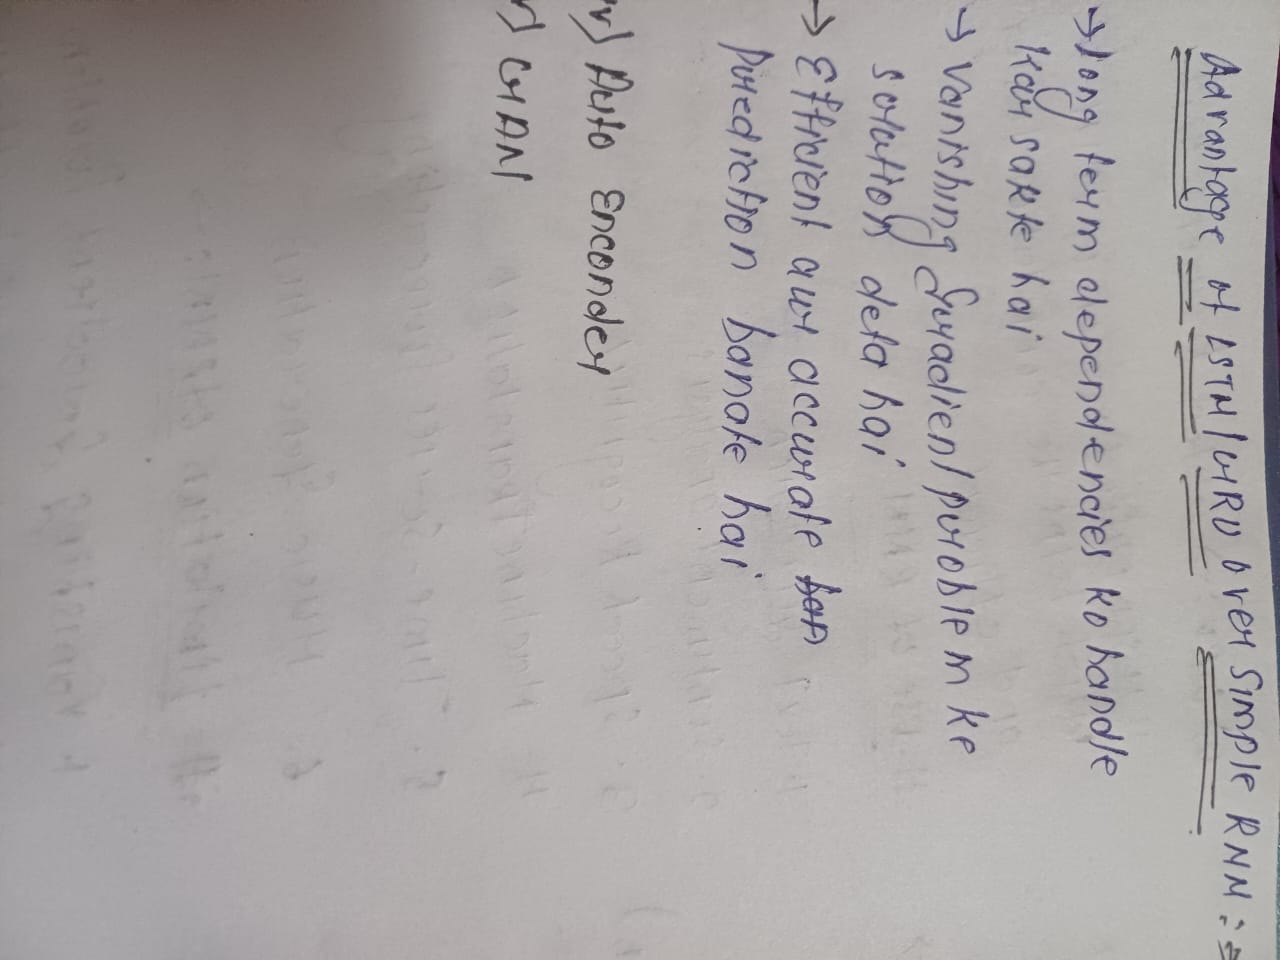 Advantage of LSTM/GRU over Simple RNN :⇒
→ long term dependencies ko handle
kar sakte hai
→ Vanishing Gradient problem ke
solution deta hai
→ Efficient aur accurate
prediction banate hai
iv) Auto Enconder
v) GAN